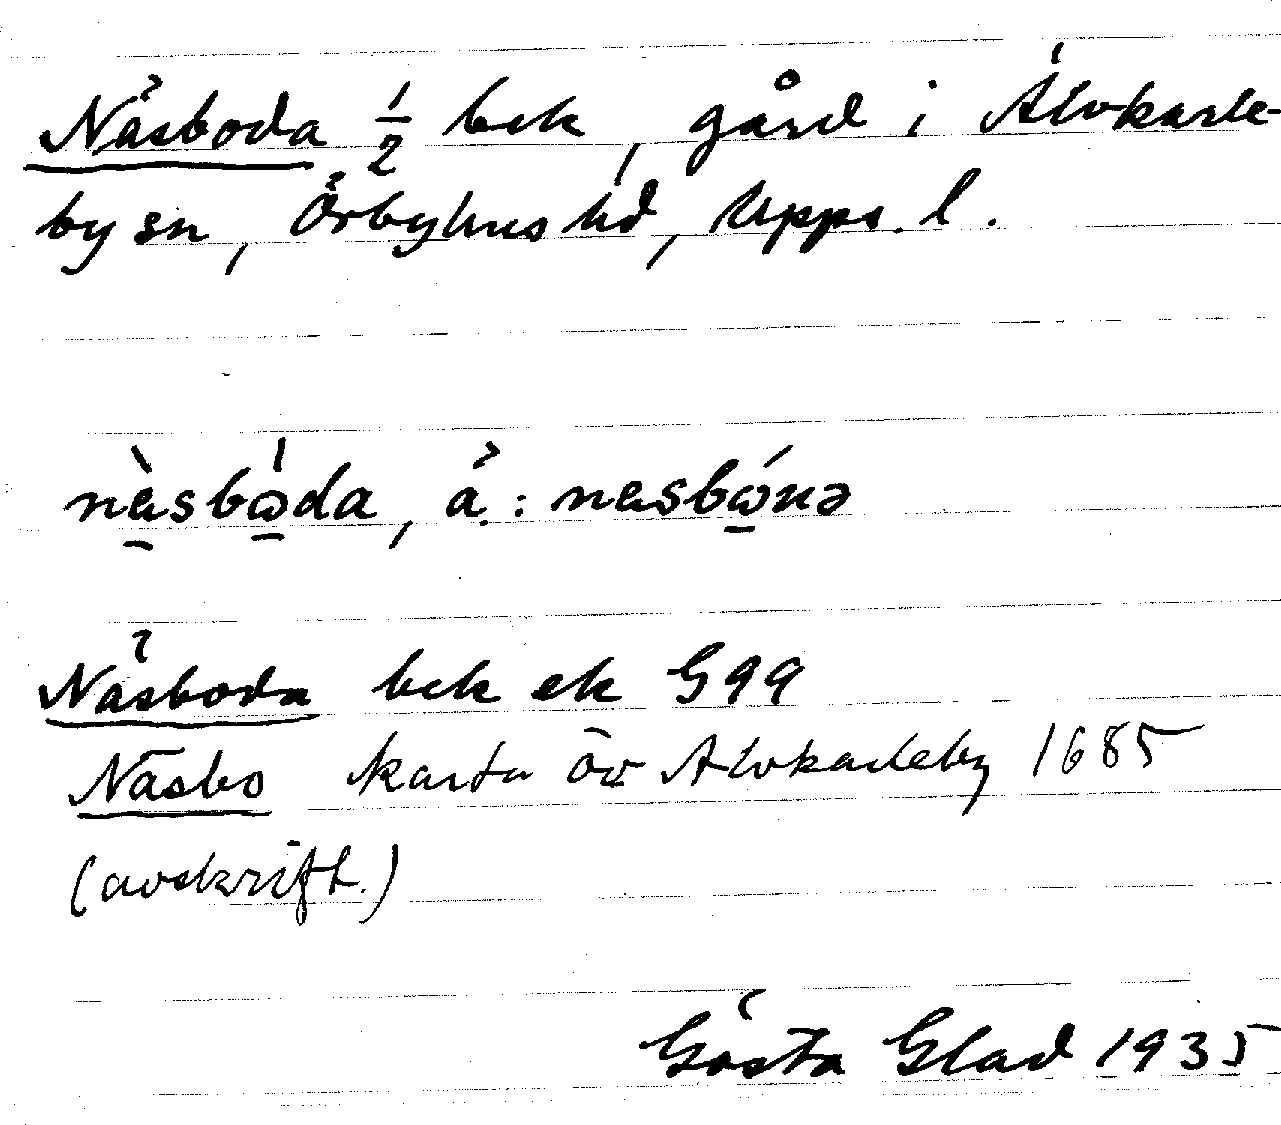 Näsboda ½ bek, gård i Älvkarle-
by sn, Örbyhus hd, Upps. l.
nàsbὼda, ä.: nasbώnə
Näsboda bek ek G99
Näsbo karta öv Älvkarleby 1685
(avskrift.)
Gösta Glad 1935